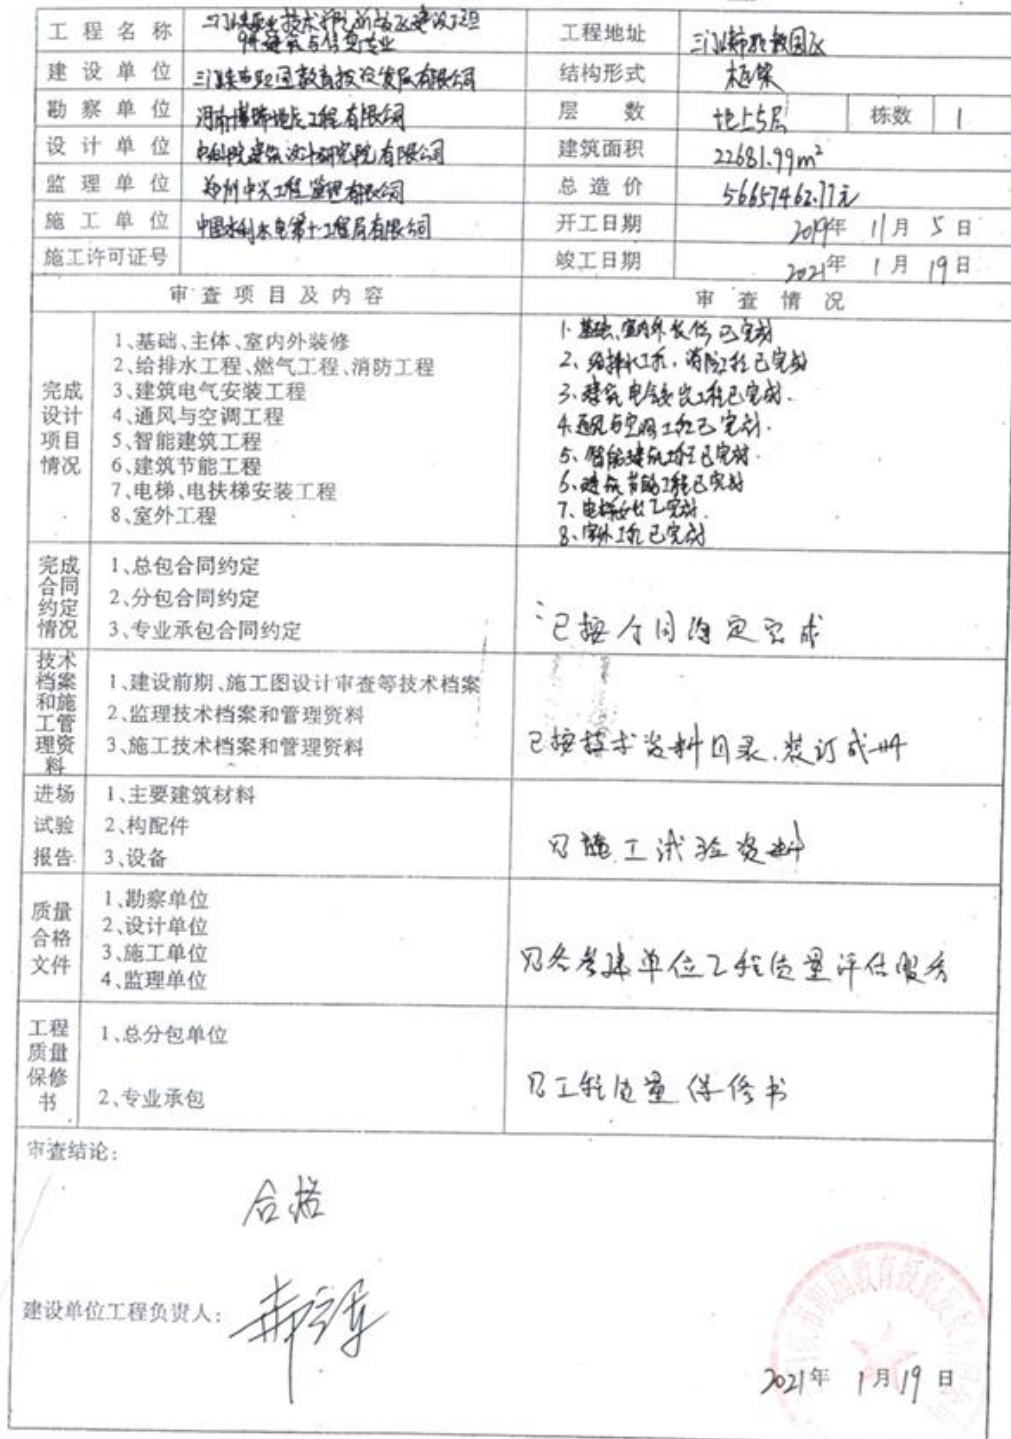 工程名称 三门峡职业技术学院新校区建设工程 工程地址 三门峡市职教园区
9#建筑与信息专业
建设单位 三门峡市职园教育投资发展有限公司 结构形式 框架
勘察单位 河南博瑞地质工程有限公司 层数 地上5层 栋数 1
设计单位 中科院建筑设计研究院有限公司 建筑面积 22681.99m²
监理单位 郑州中兴工程监理有限公司 总造价 56657462.77元
施工单位 中国水利水电第十一工程局有限公司 开工日期 2019年 11月 5日
施工许可证号 竣工日期 2021年 1月 19日
审查项目及内容 审查情况
完成设计项目情况
1、基础、主体、室内外装修
2、给排水工程、燃气工程、消防工程
3、建筑电气安装工程
4、通风与空调工程
5、智能建筑工程
6、建筑节能工程
7、电梯、电扶梯安装工程
8、室外工程
1、基础、室内外装修已完成
2、给排水工程、消防工程已完成
3、建筑电气安装工程已完成.
4、通风与空调工程已完成.
5、智能建筑工程已完成.
6、建筑节能工程已完成
7、电梯安装已完成.
8、室外工程已完成
完成合同约定情况
1、总包合同约定
2、分包合同约定
3、专业承包合同约定
已按合同约定完成
技术档案和施工管理资料
1、建设前期、施工图设计审查等技术档案
2、监理技术档案和管理资料
3、施工技术档案和管理资料
已按技术资料目录.装订成册
进场试验报告
1、主要建筑材料
2、构配件
3、设备
见施工试验资料
质量合格文件
1、勘察单位
2、设计单位
3、施工单位
4、监理单位
见各参建单位工程质量评估报告
工程质量保修书
1、总分包单位
2、专业承包
见工程质量保修书
审查结论:
合格
建设单位工程负责人:
2021年 1月 19日